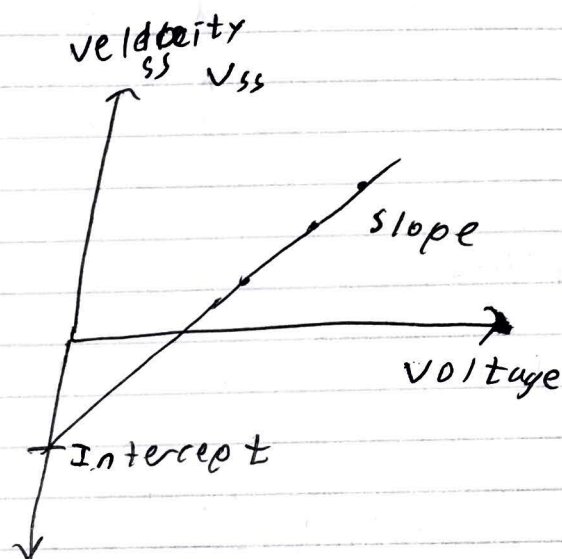 velocity
ss Vss
slope
Voltage
Intercept